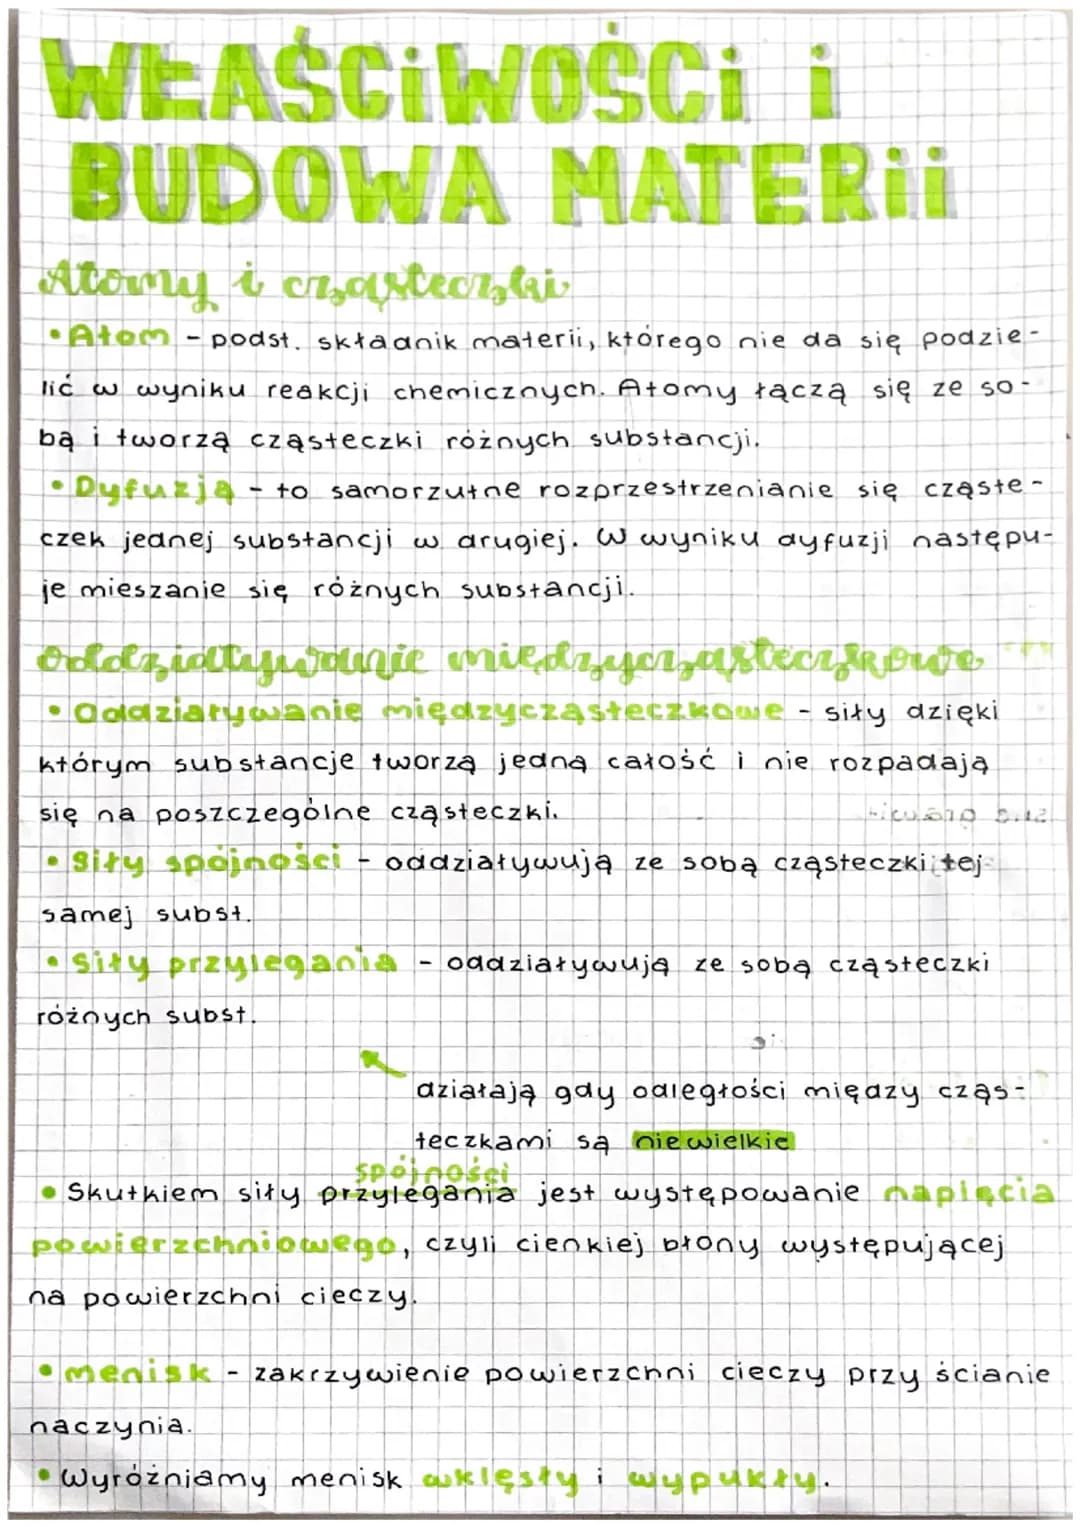 WŁAŚCiWOŚCi i
BUDOWA MATERii
Atomy i cząsteczki
•Atom - podst. składnik materii, którego nie da się podzie-
lić w wyniku reakcji chemicznych. Atomy łączą się ze so-
bą i tworzą cząsteczki różnych substancji.
•Dyfuzja - to samorzutne rozprzestrzenianie się cząste-
czek jednej substancji w drugiej. W wyniku dyfuzji następu-
je mieszanie się różnych substancji.
Oddziaływanie międzycząsteczkowe
•Oddziaływanie międzycząsteczkowe - siły dzięki
którym substancje tworzą jedną całość i nie rozpadają
się na poszczególne cząsteczki.
•Siły spójności - oddziaływują ze sobą cząsteczki tej
samej subst.
•Siły przylegania - oddziaływują ze sobą cząsteczki
różnych subst.
działają gdy odległości między cząs-
teczkami są niewielkie
spójności
•Skutkiem siły przylegania jest występowanie napięcia
powierzchniowego, czyli cienkiej błony występującej
na powierzchni cieczy.
•menisk - zakrzywienie powierzchni cieczy przy ścianie
naczynia.
•Wyróżniamy menisk wklęsły i wypukły.